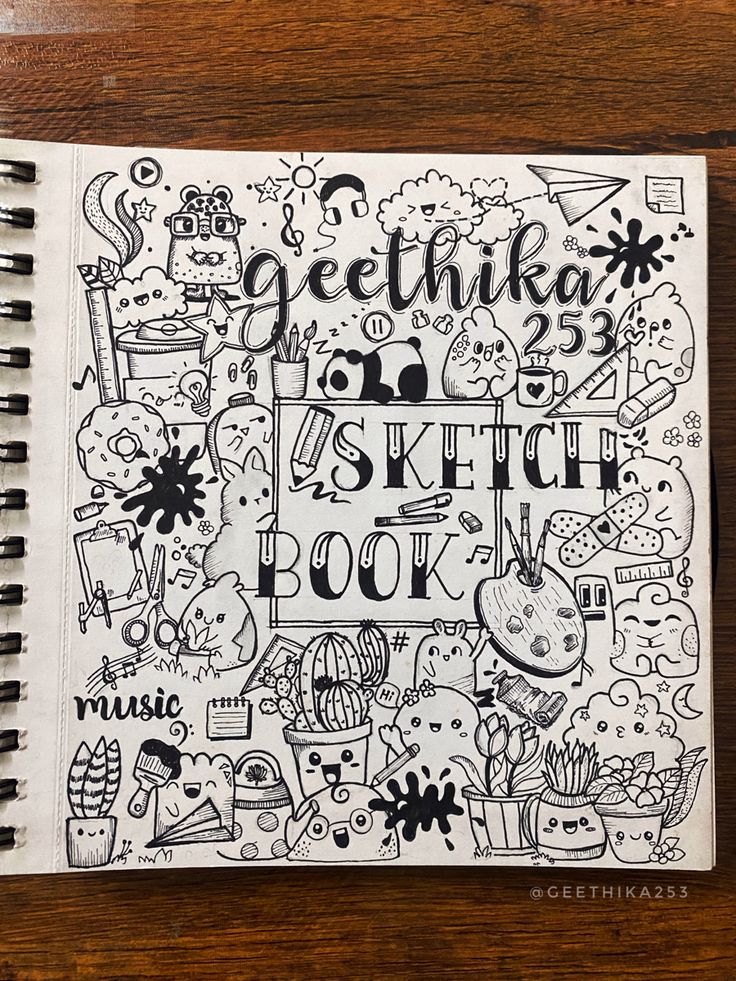 geethika
253
SKETCH
BOOK
#
Hi
music
@GEETHIKA253